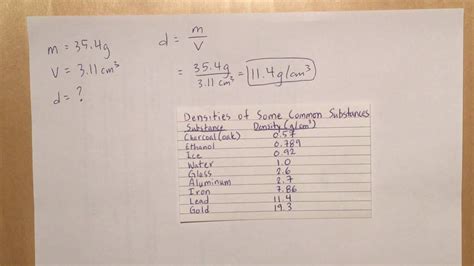 m = 35.4g
V = 3.11 cm³
d = ?
d = m/V
= 35.4g/3.11 cm³ = 11.4g/cm³
Densities of Some Common Substances
Substance Density (g/cm³)
Charcoal (oak) 0.57
Ethanol 0.789
Ice 0.92
Water 1.0
Glass 2.6
Aluminum 2.7
Iron 7.86
Lead 11.4
Gold 19.3